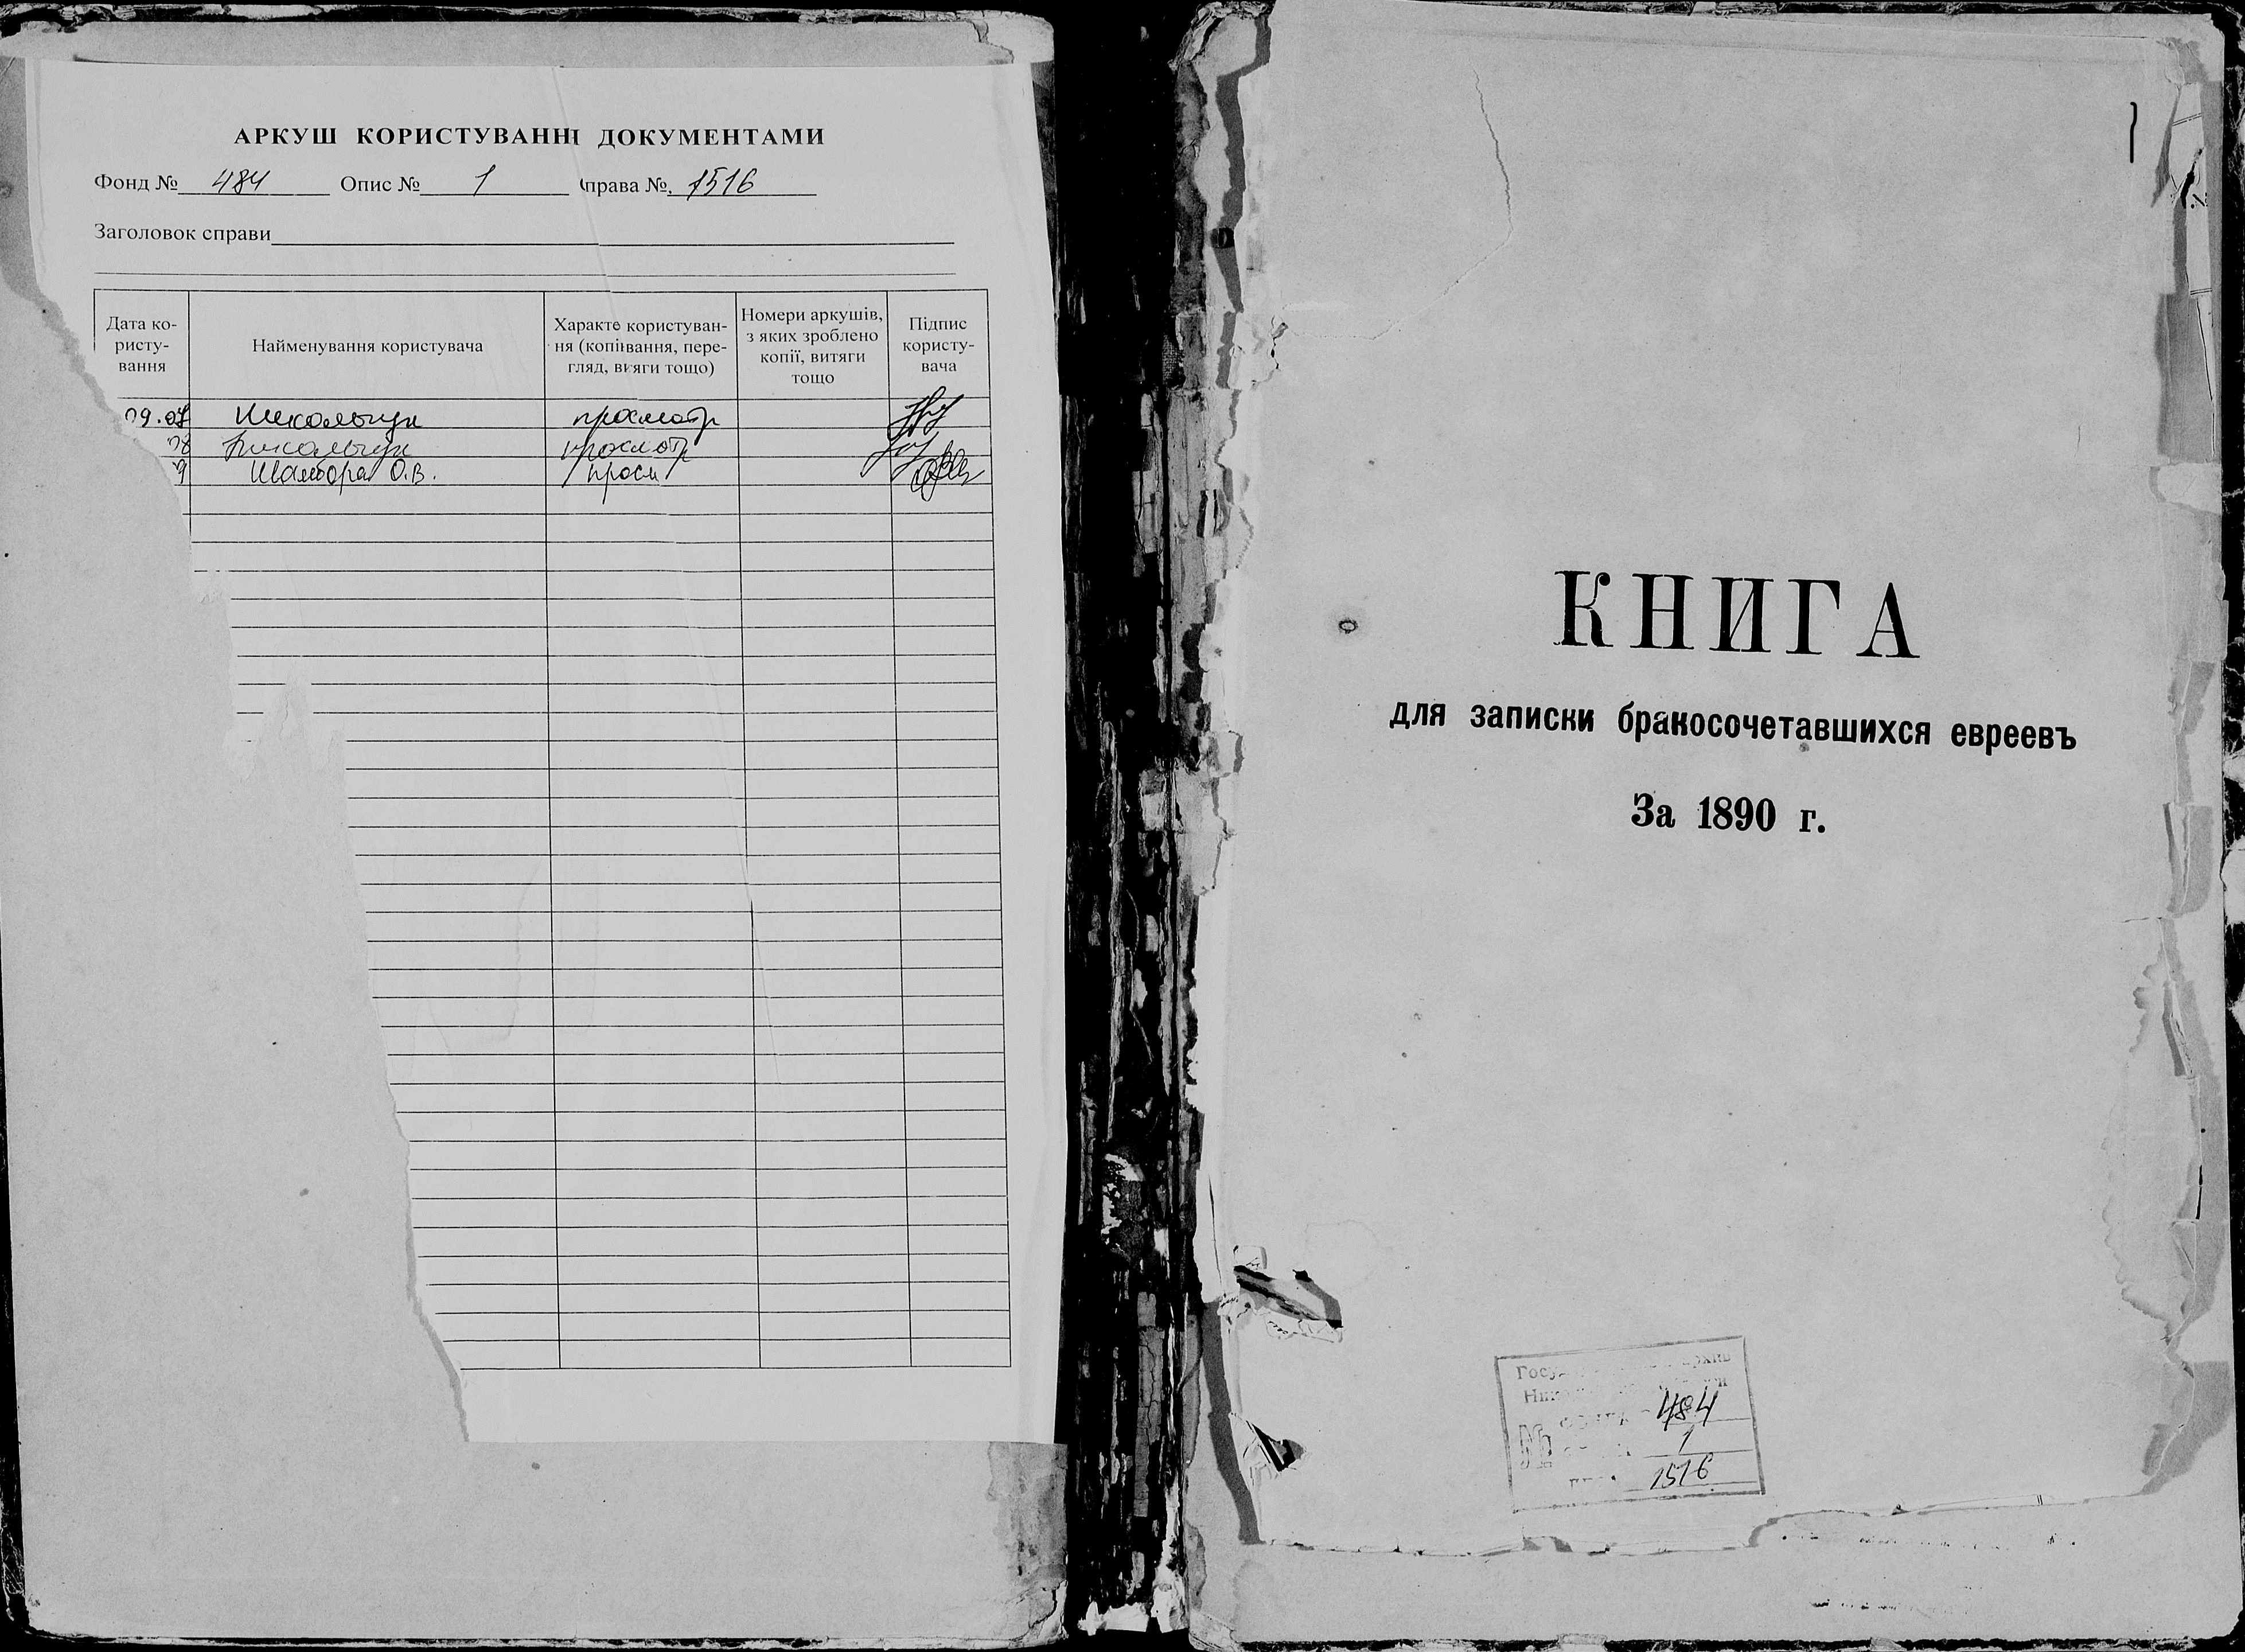 АРКУШ КОРИСТУВАННІ ДОКУМЕНТАМИ
Фонд № 484 Опис № 1 права № 1516
Заголовок справи
Дата ко-
ристу-
вання
Найменування користувача
Характе користуван-
ня (копіювання, пере-
гляд, витяги тощо)
Номери аркушів,
з яких зроблено
копії, витяги
тощо
Підпис
користу-
вача
09.07 просмотр
08 просмотр
9 О.В. просм
1
КНИГА
для записки бракосочетавшихся евреевъ
За 1890 г.
484
1
1516